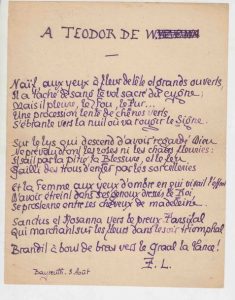 A TEODOR DE W
Naïf, aux yeux à fleur de tête et grands ouverts
Il a taché de sang le vol sacré du cygne;
Mais il pleure, le Fou, le Pur...
Une procession lente de chênes verts
S'ébranle vers la nuit où va rougir le Signe.
Sur le lys qui descend d'avoir regardé Dieu
Ne prévaudront les roses ni les chairs fleuries:
Il sait par la pitié la Blessure, et le feu
Jailli des trous d'enfer par les sorcelleries
Et la Femme aux yeux d'ombre en qui vivait l'
D'avoir étreint dans ses genoux dressés le Roi,
Se prosterne entre ses cheveux de madeleine.
Sanctus et Hosanna vers le preux Parsifal
Qui marchait sur les fleurs dans le soir triomphal
Brandit à bout de bras vers le Graal la Lance!
Bayreuth. 3 Août